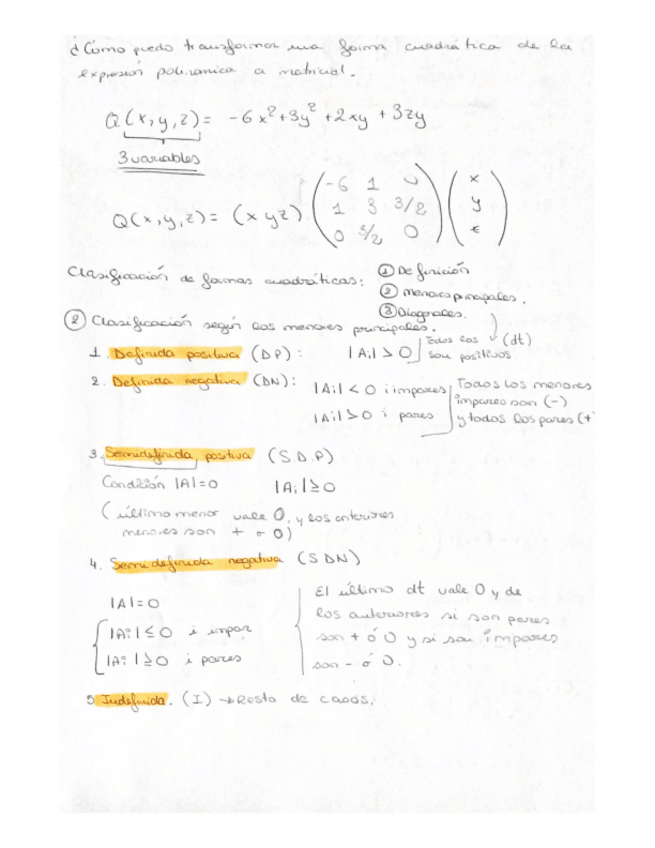 ¿Cómo puedo transformar una forma cuadrática de la
expresión polinomica a matricial.
Q(x,y,z)= -6x²+3y²+2xy+3zy
3 variables
Q(x,y,z)= (x y z) (-6 1 0 / 1 3 3/2 / 0 3/2 0) (x / y / z)
Clasificación de formas cuadráticas: ① Definición
② menores principales.
③ Diagonales.
② Clasificación según los menores principales.
1. Definida positiva (DP): |Ai| > 0 Todos los (dt)
son positivos.
2. Definida negativa (DN): |Ai| < 0 i impares Todos los menores
impares son (-)
|Ai| > 0 i pares y todos los pares (+
3. Semidefinida positiva (S.D.P)
Condición |A|=0 |Ai| ≥ 0
(último menor vale 0, y los anteriores
menores son + o 0)
4. Semidefinida negativa (SDN)
|A|=0
|Ai| ≤ 0 i impar
|Ai| ≥ 0 i pares
El último dt vale 0 y de
los anteriores si son pares
son + ó 0 y si son impares
son - ó 0.
5 Indefinida. (I) → Resto de casos.